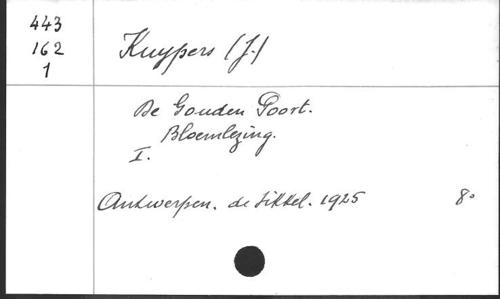 443
162
1
Kuypers (J.)
De Gouden Poort.
Bloemlezing.
I.
Antwerpen. de Sikkel. 1925 8°